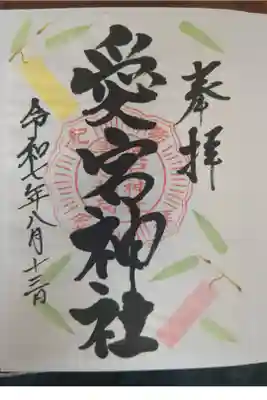 奉拝
愛宕神社
令和七年八月十三日